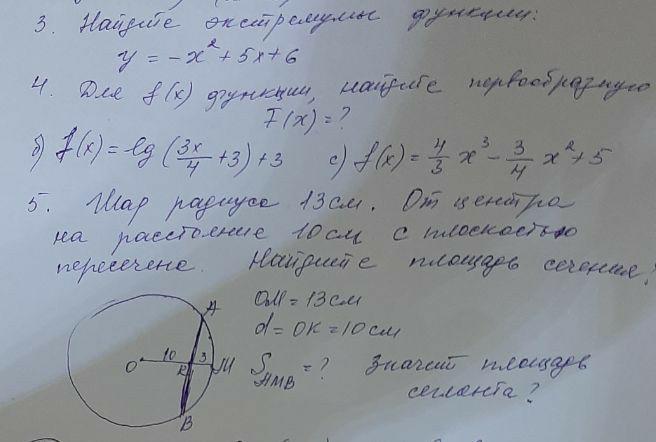 3. Найдите экстремумы функции:
y = -x² + 5x + 6
4. Для f(x) функции, найдите первообразную
F(x) = ?
б) f(x) = -lg(3x/4 + 3) + 3 c) f(x) = 4/3 x³ - 3/4 x² + 5
5. Шар радиуса 13 см. От центра
на расстояние 10 см с плоскостью
пересечено. Найдите площадь сечения?
OM = 13 см
d = OK = 10 см
S_AMB = ? Значит площадь
сегмента?
A
O 10 K 3 M
B